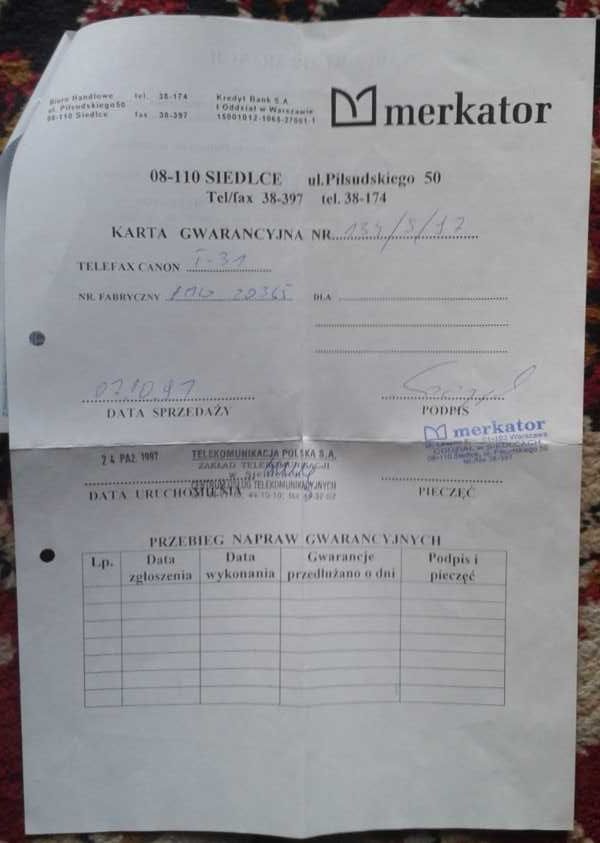 Biuro Handlowe tel. 38-174 Kredyt Bank S.A.
ul. Piłsudskiego 50 I Oddział w Warszawie
08-110 Siedlce fax 38-397 15001012-1065-27001-1
merkator
08-110 SIEDLCE ul.Piłsudskiego 50
Tel/fax 38-397 tel. 38-174
KARTA GWARANCYJNA NR. 134/S/97
TELEFAX CANON T-31
NR. FABRYCZNY 20365 DLA
07.10.97
DATA SPRZEDAŻY PODPIS
merkator
ODDZIAŁ W SIEDLCACH
08-110 Siedlce, ul. Piłsudskiego 50
24 PAŹ. 1997 TELEKOMUNIKACJA POLSKA S.A.
ZAKŁAD TELEKOMUNIKACJI
w Siedlcach
CENTRUM USŁUG TELEKOMUNIKACYJNYCH
DATA URUCHOMIENIA PIECZĘĆ
PRZEBIEG NAPRAW GWARANCYJNYCH
Lp. Data zgłoszenia Data wykonania Gwarancje przedłużano o dni Podpis i pieczęć